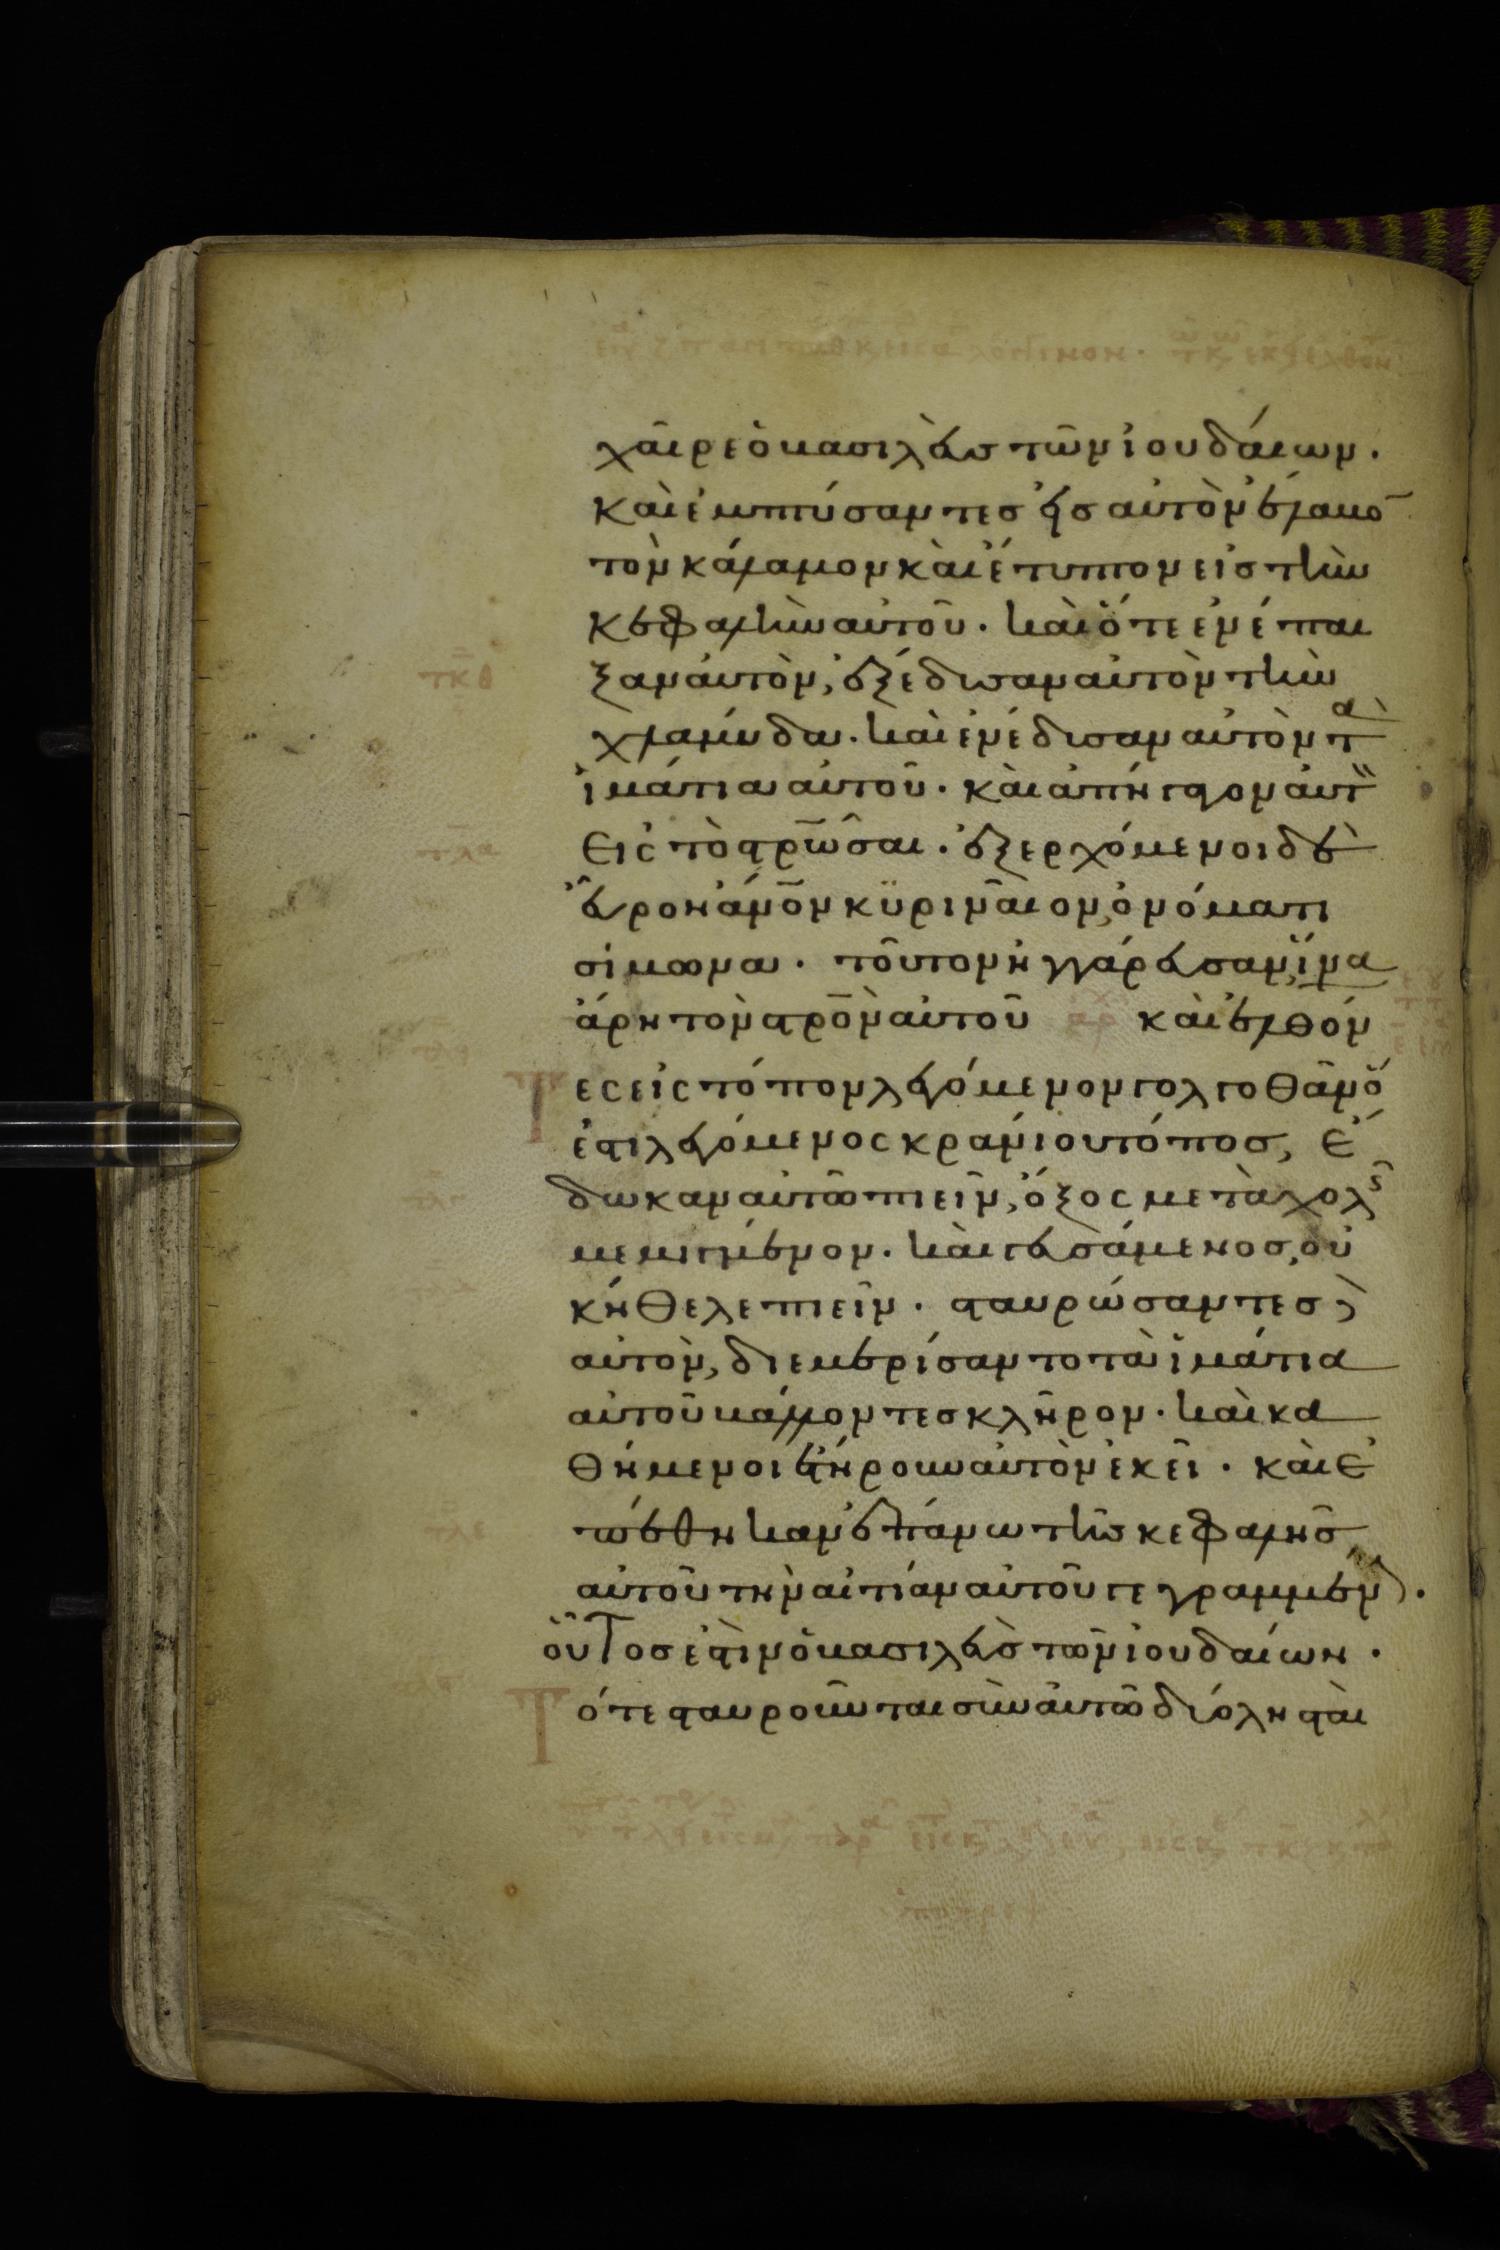 χαῖρε ὁ βασιλεὺσ τῶν ἰουδάιων.
Καὶ ἐμπτύσαντεσ εἰσ αὐτὸν ἔλαβο̄
τὸν κάλαμον κὰι ἔτυπτον εἰσ τὴν
κεφαλὴν αὐτοῦ. καὶ ὅτε ἐνέπαι
ξαν ἀυτὸν, ἐξέδυσαν αὐτὸν τὴν
χλαμύδα. καὶ ἐνέδυσαν αὐτὸν τὰ
ἱμάτια αὐτοῦ. κὰι ἀπήγαγον ἀυτ
Εἰς τὸ στρ̄ῶσαι. ἐξερχόμενοι δὲ
εὗρον ἄνο̄ν κϋρινᾶιον, ὀνόματι
σίμωνα. τοῦτον ἠγγάρευσαν, ἵνα
ἄρη τὸν στρο̄ν αὐτοῦ κὰι ἐλθόν
τες εἰς τόπον λεγόμενον γολγοθᾶν ὅ
ἐστι λεγόμενος κρανίου τόποσ, ἔ
δωκαν αὐτῶ πιεῖν, ὄξος μετὰ χολῆς
μεμιγμένον. κὰι γευσάμενοσ, οὐ
κ ἤθελε πιεῖν. σταυρώσαντεσ δὲ
αὐτὸν, διεμερίσαντο τὰ ἱμάτια
αὐτοῦ βάλλοντεσ κλῆρον. κὰι κα
θήμενοι ἐτήρουν αὐτὸν ἐκεῖ. κὰι ἐ
πέθηκαν ἐπάνω τῆσ κεφαλῆσ
αὐτοῦ τὴν αἰτίαν αὐτοῦ γεγραμμένην.
οὗΤοσ ἐστὶν ὁ βασιλεὺσ τῶν ἰουδαίων.
Τότε σταυροῦνται σὺν ἀυτῶ δύο λησταὶ